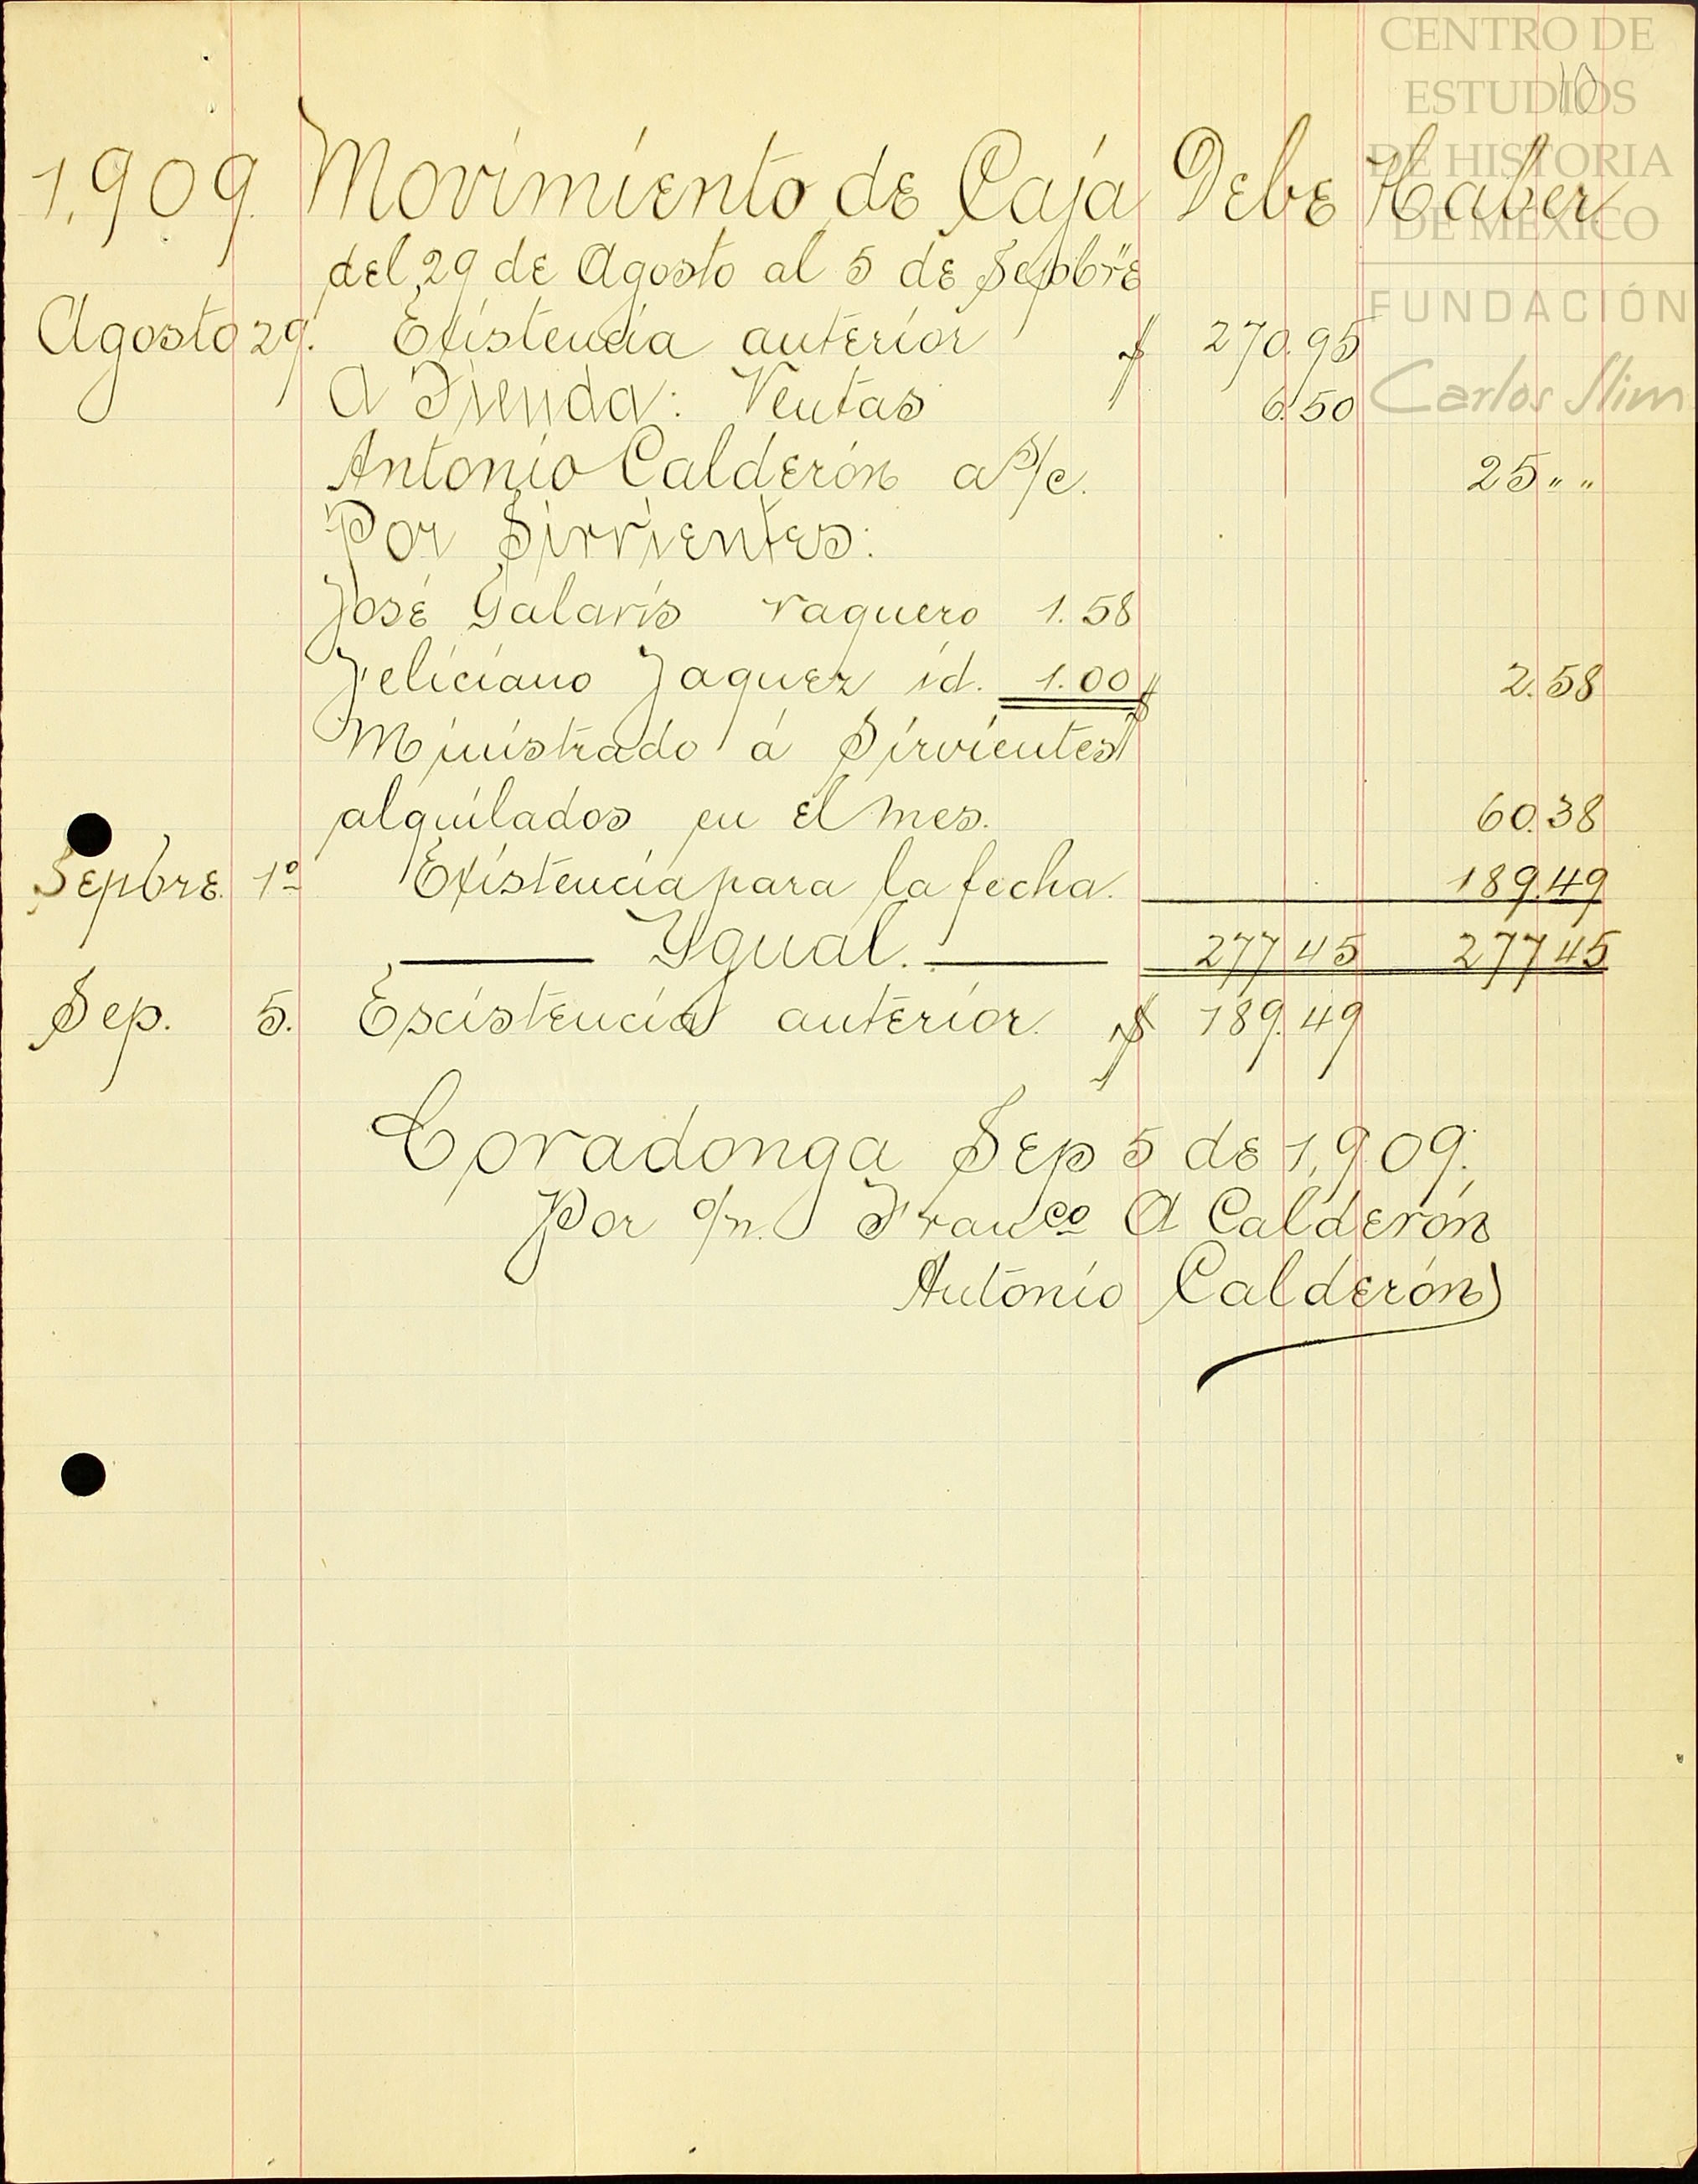 CENTRO DE
ESTUDIOS
DE HISTORIA
DE MÉXICO
FUNDACIÓN
Carlos Slim
10
1,909. Movimiento de Caja Debe Haber
del 29 de Agosto al 5 de Sepbre
Agosto 29. Existencia anterior $ 270.95
A Tienda: Ventas 6.50
Antonio Calderón a s/c. 25 " "
Por Sirvientes:
José Galavis vaquero 1.58
Feliciano Jaquez id. 1.00 $ 2.58
Ministrado á Sirvientes
alquilados en el mes. 60.38
Sepbre. 1º Existencia para la fecha. 189.49
Ygual. 277 45 277 45
Sep. 5. Escistencia anterior. $ 189.49
Covadonga Sep 5 de 1,909.
Por o/n. Franco A Calderón
Antonio Calderón